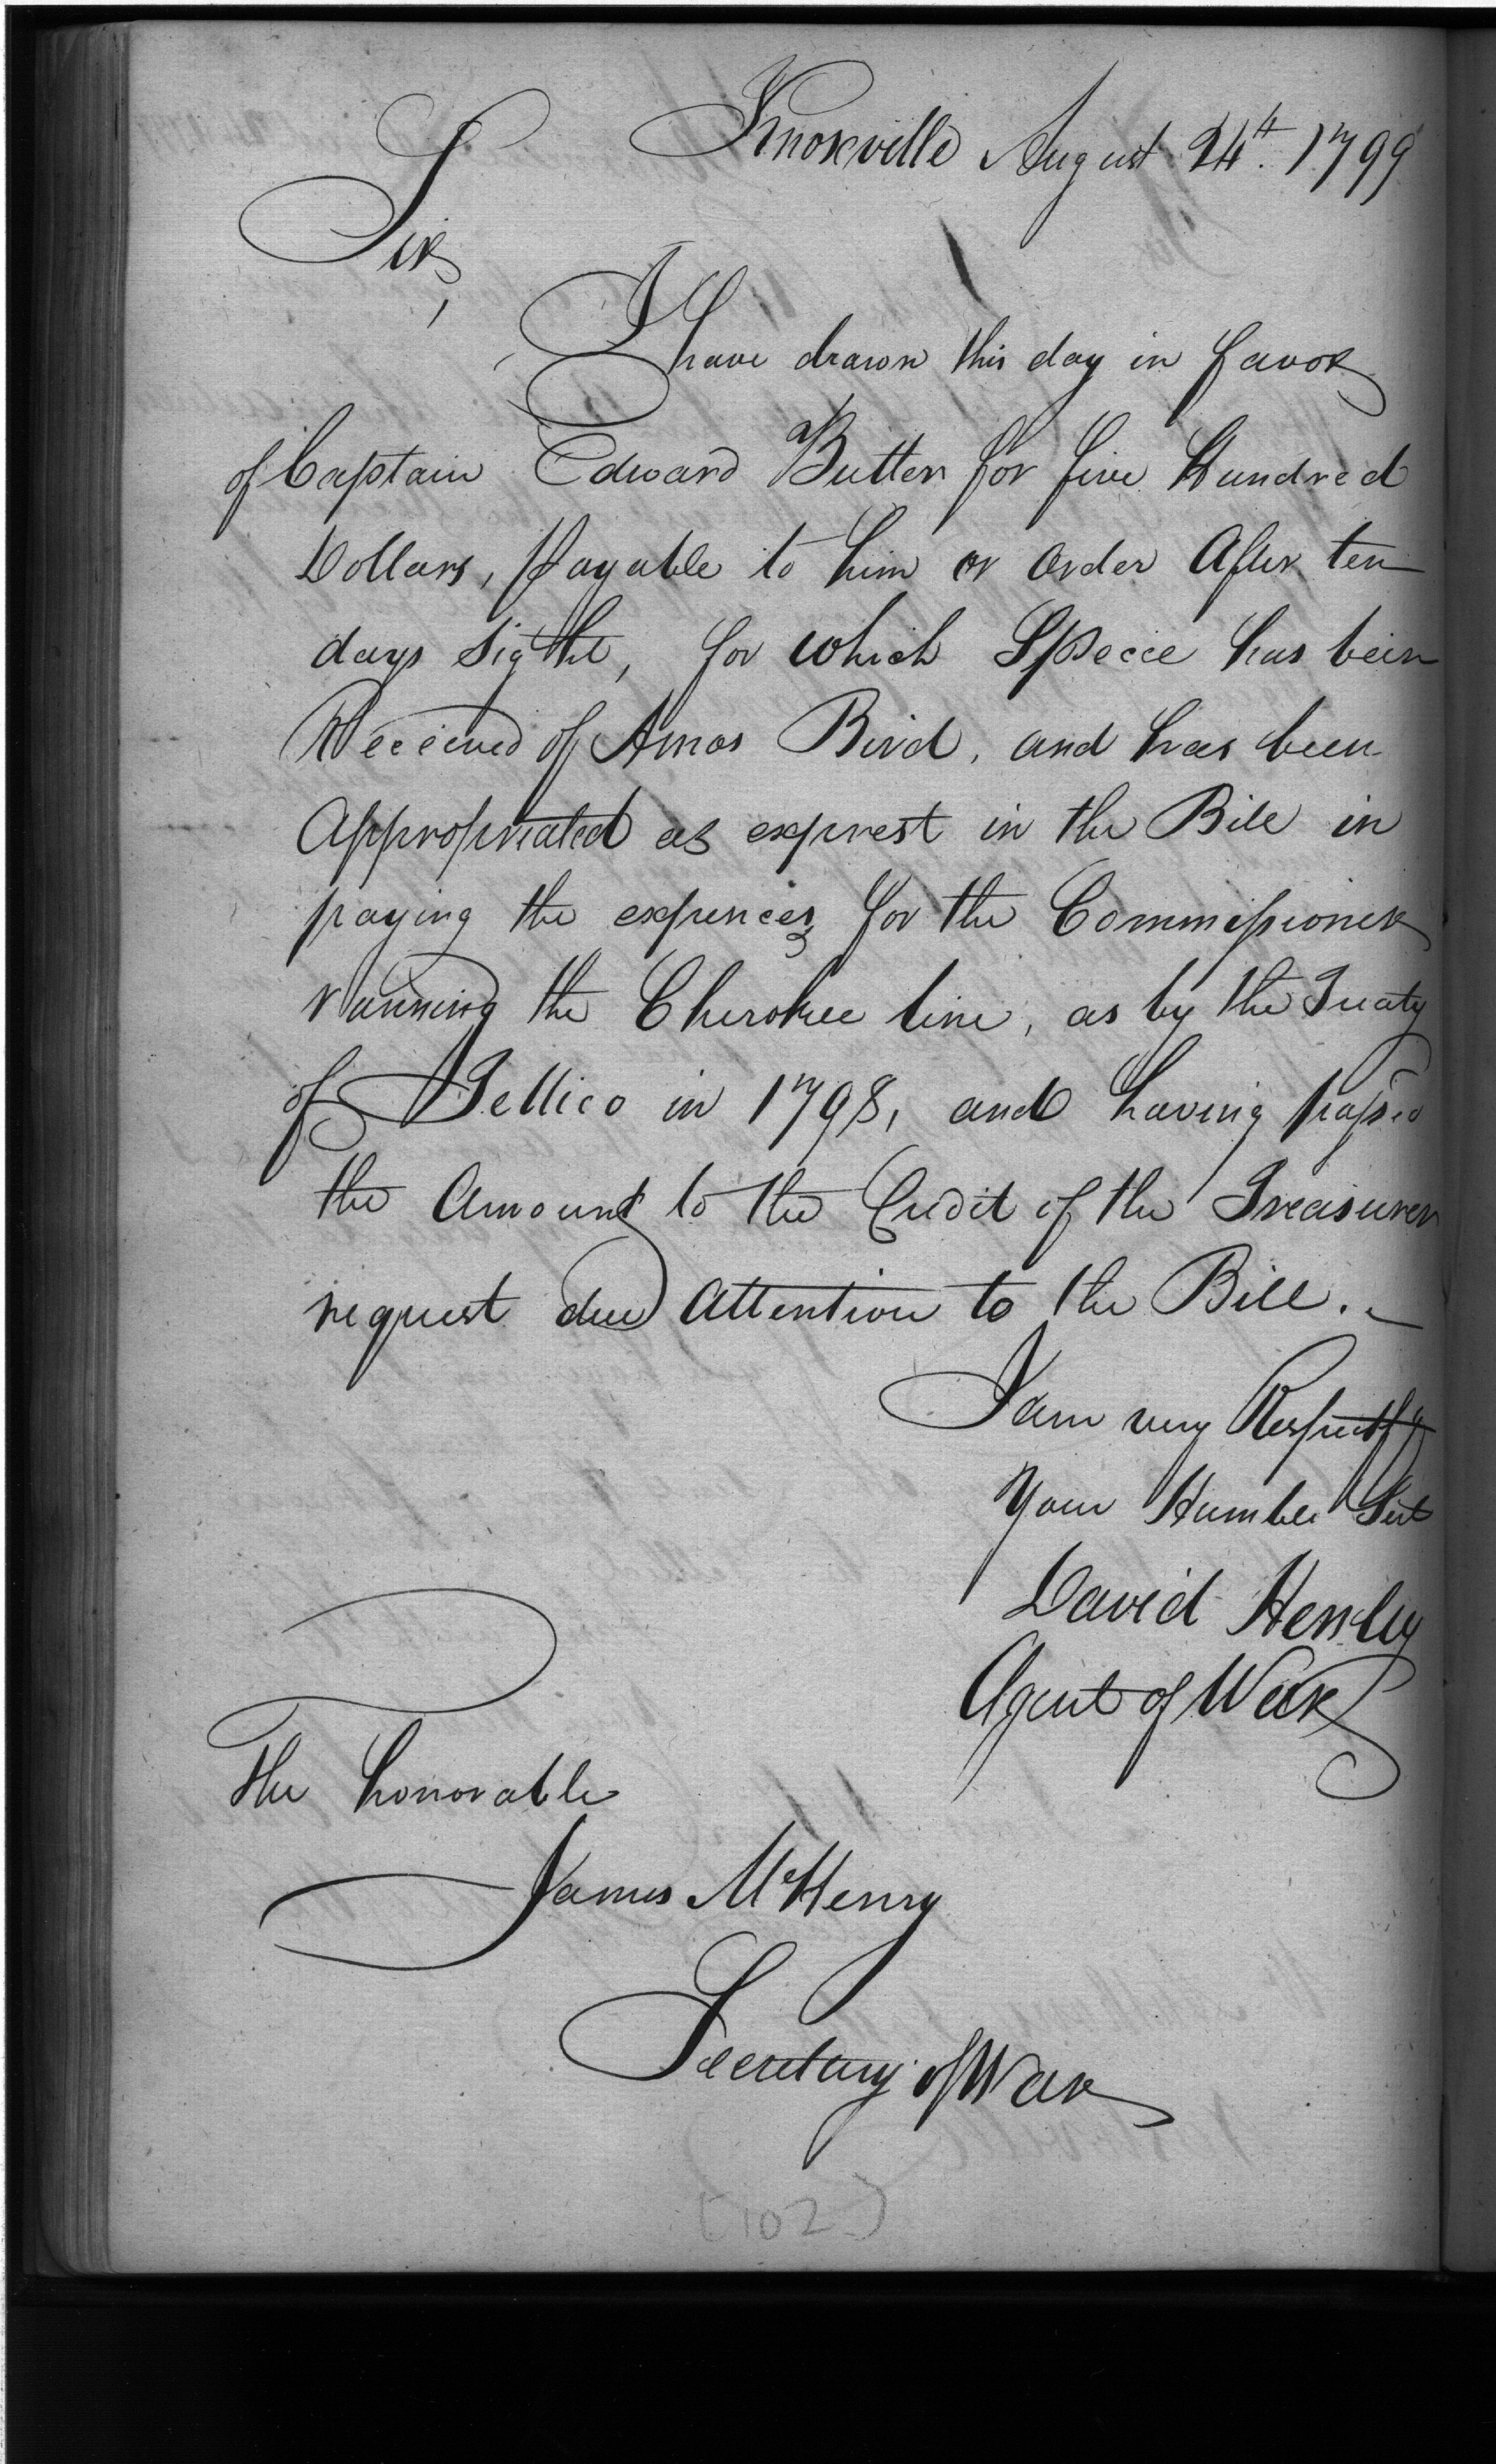 Knoxville August 24th. 1799
Sir,
I have drawn this day in favor
of Captain Edward Butler for five Hundred
Dollars, Payable to him or order After ten
days Sigtht, for which Specie has been
Received of Amos Bird, and has been
Appropriated as exprest in the Bill in
paying the expences for the Commissioner
running the Cherokee line, as by the Treaty
of Tellico in 1798, and having passed
the Amount to the Credit of the Treasurer
request due Attention to the Bill.
I am very Respectfy
Your Humble Sert
David Henley
Agent of War
The honorable
James McHenry
Secretary of War
[102]